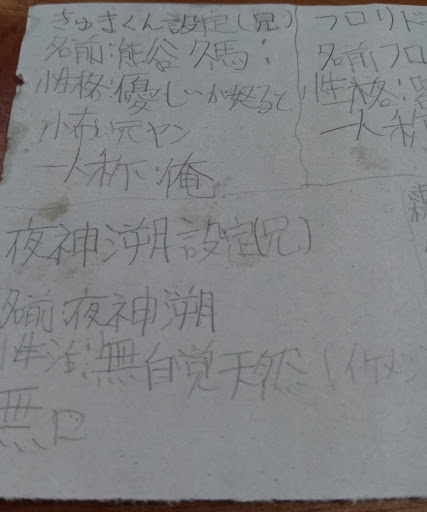 きゅまくん設定(兄)
名前:熊谷久馬
性格:優しいが怒ると
怖 元ヤン
一人称:俺
フロリド
名前 フロ
性格:
一人称
夜神溯設定(兄)
名前:夜神溯
性活:無自覚天然 イケメン
無口